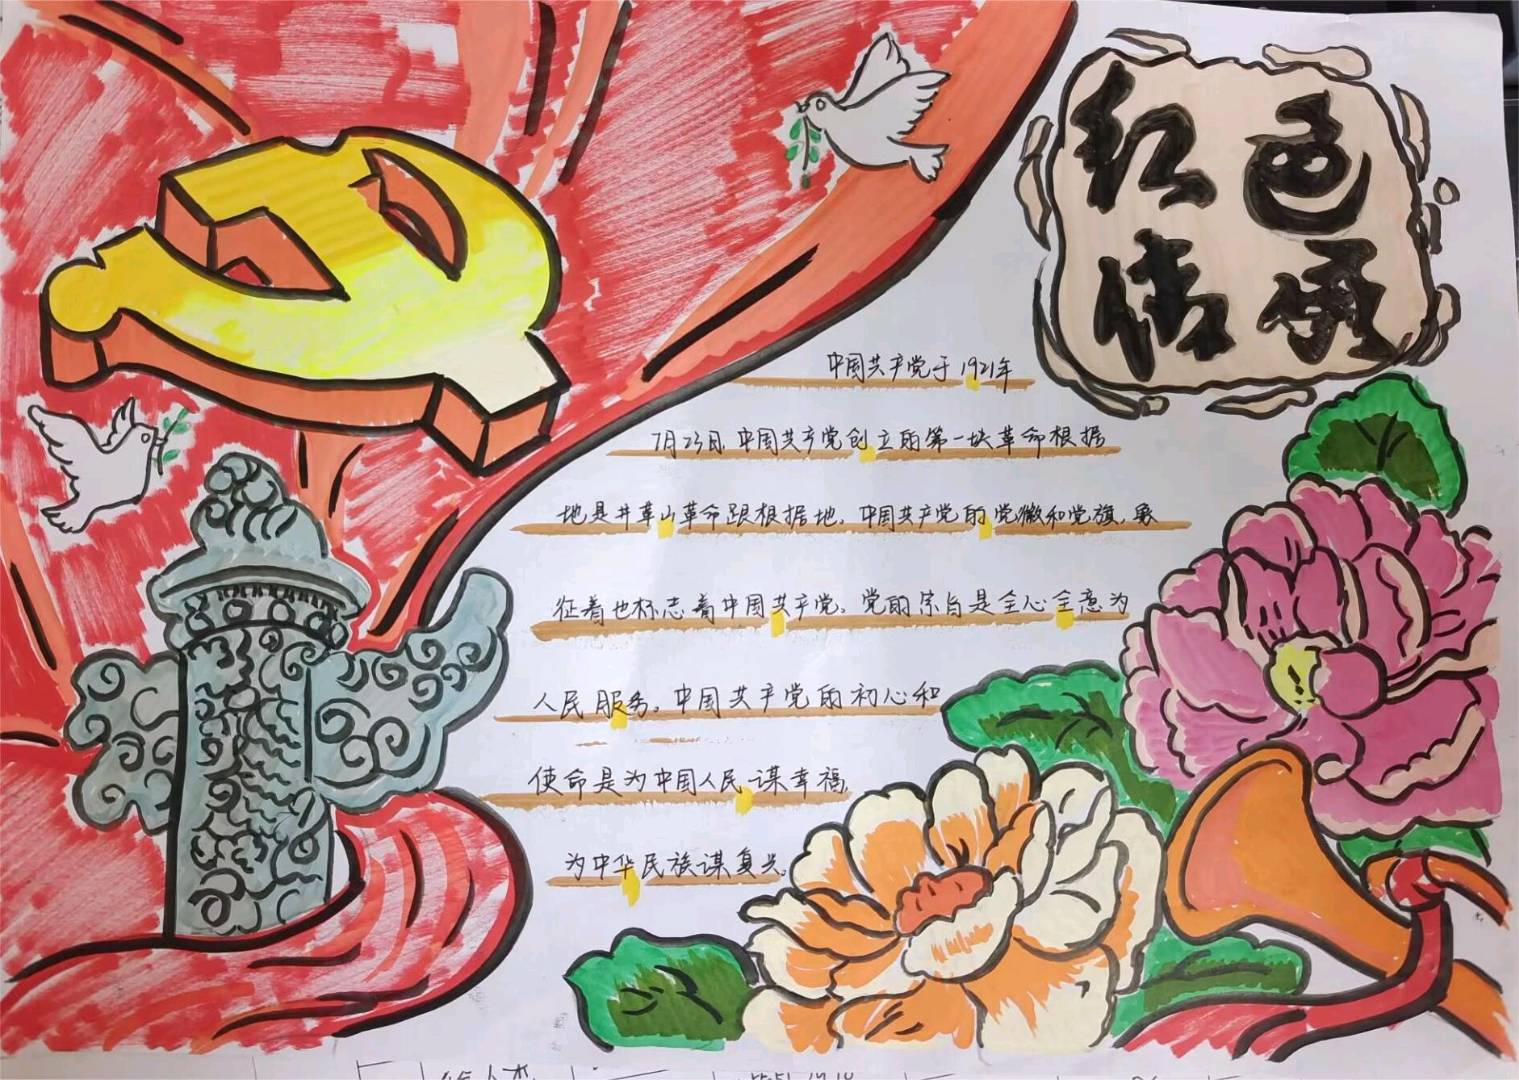 红色
情承
中国共产党于1921年
7月23日中国共产党创立的第一块革命根据
地是井草山革命跟根据地.中国共产党的党徽和党旗,象
征着也标志着中国共产党。党的宗旨是全心全意为
人民服务。中国共产党的初心和
使命是为中国人民谋幸福,
为中华民族谋复兴.